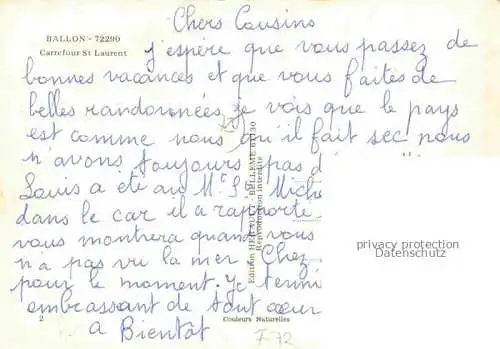 Chers Cousins
BALLON - 72290
Carrefour St Laurent
j'espère que vous passez de
bonnes vacances et que vous faites de
belles randonnées, je vois que le pays
est comme nous qu'il fait sec nous
n'avons toujours pas d
Louis a été au Mt St Miche
dans le car il a rapporté
vous montrera quand vous
n'a pas vu la mer. Chez
pour le moment. Je termi
embrassant de tout cœur
à Bientôt
2
Couleurs Naturelles
F 72
Edition - BELLEME 61130
Reproduction interdite
privacy protection
Datenschutz